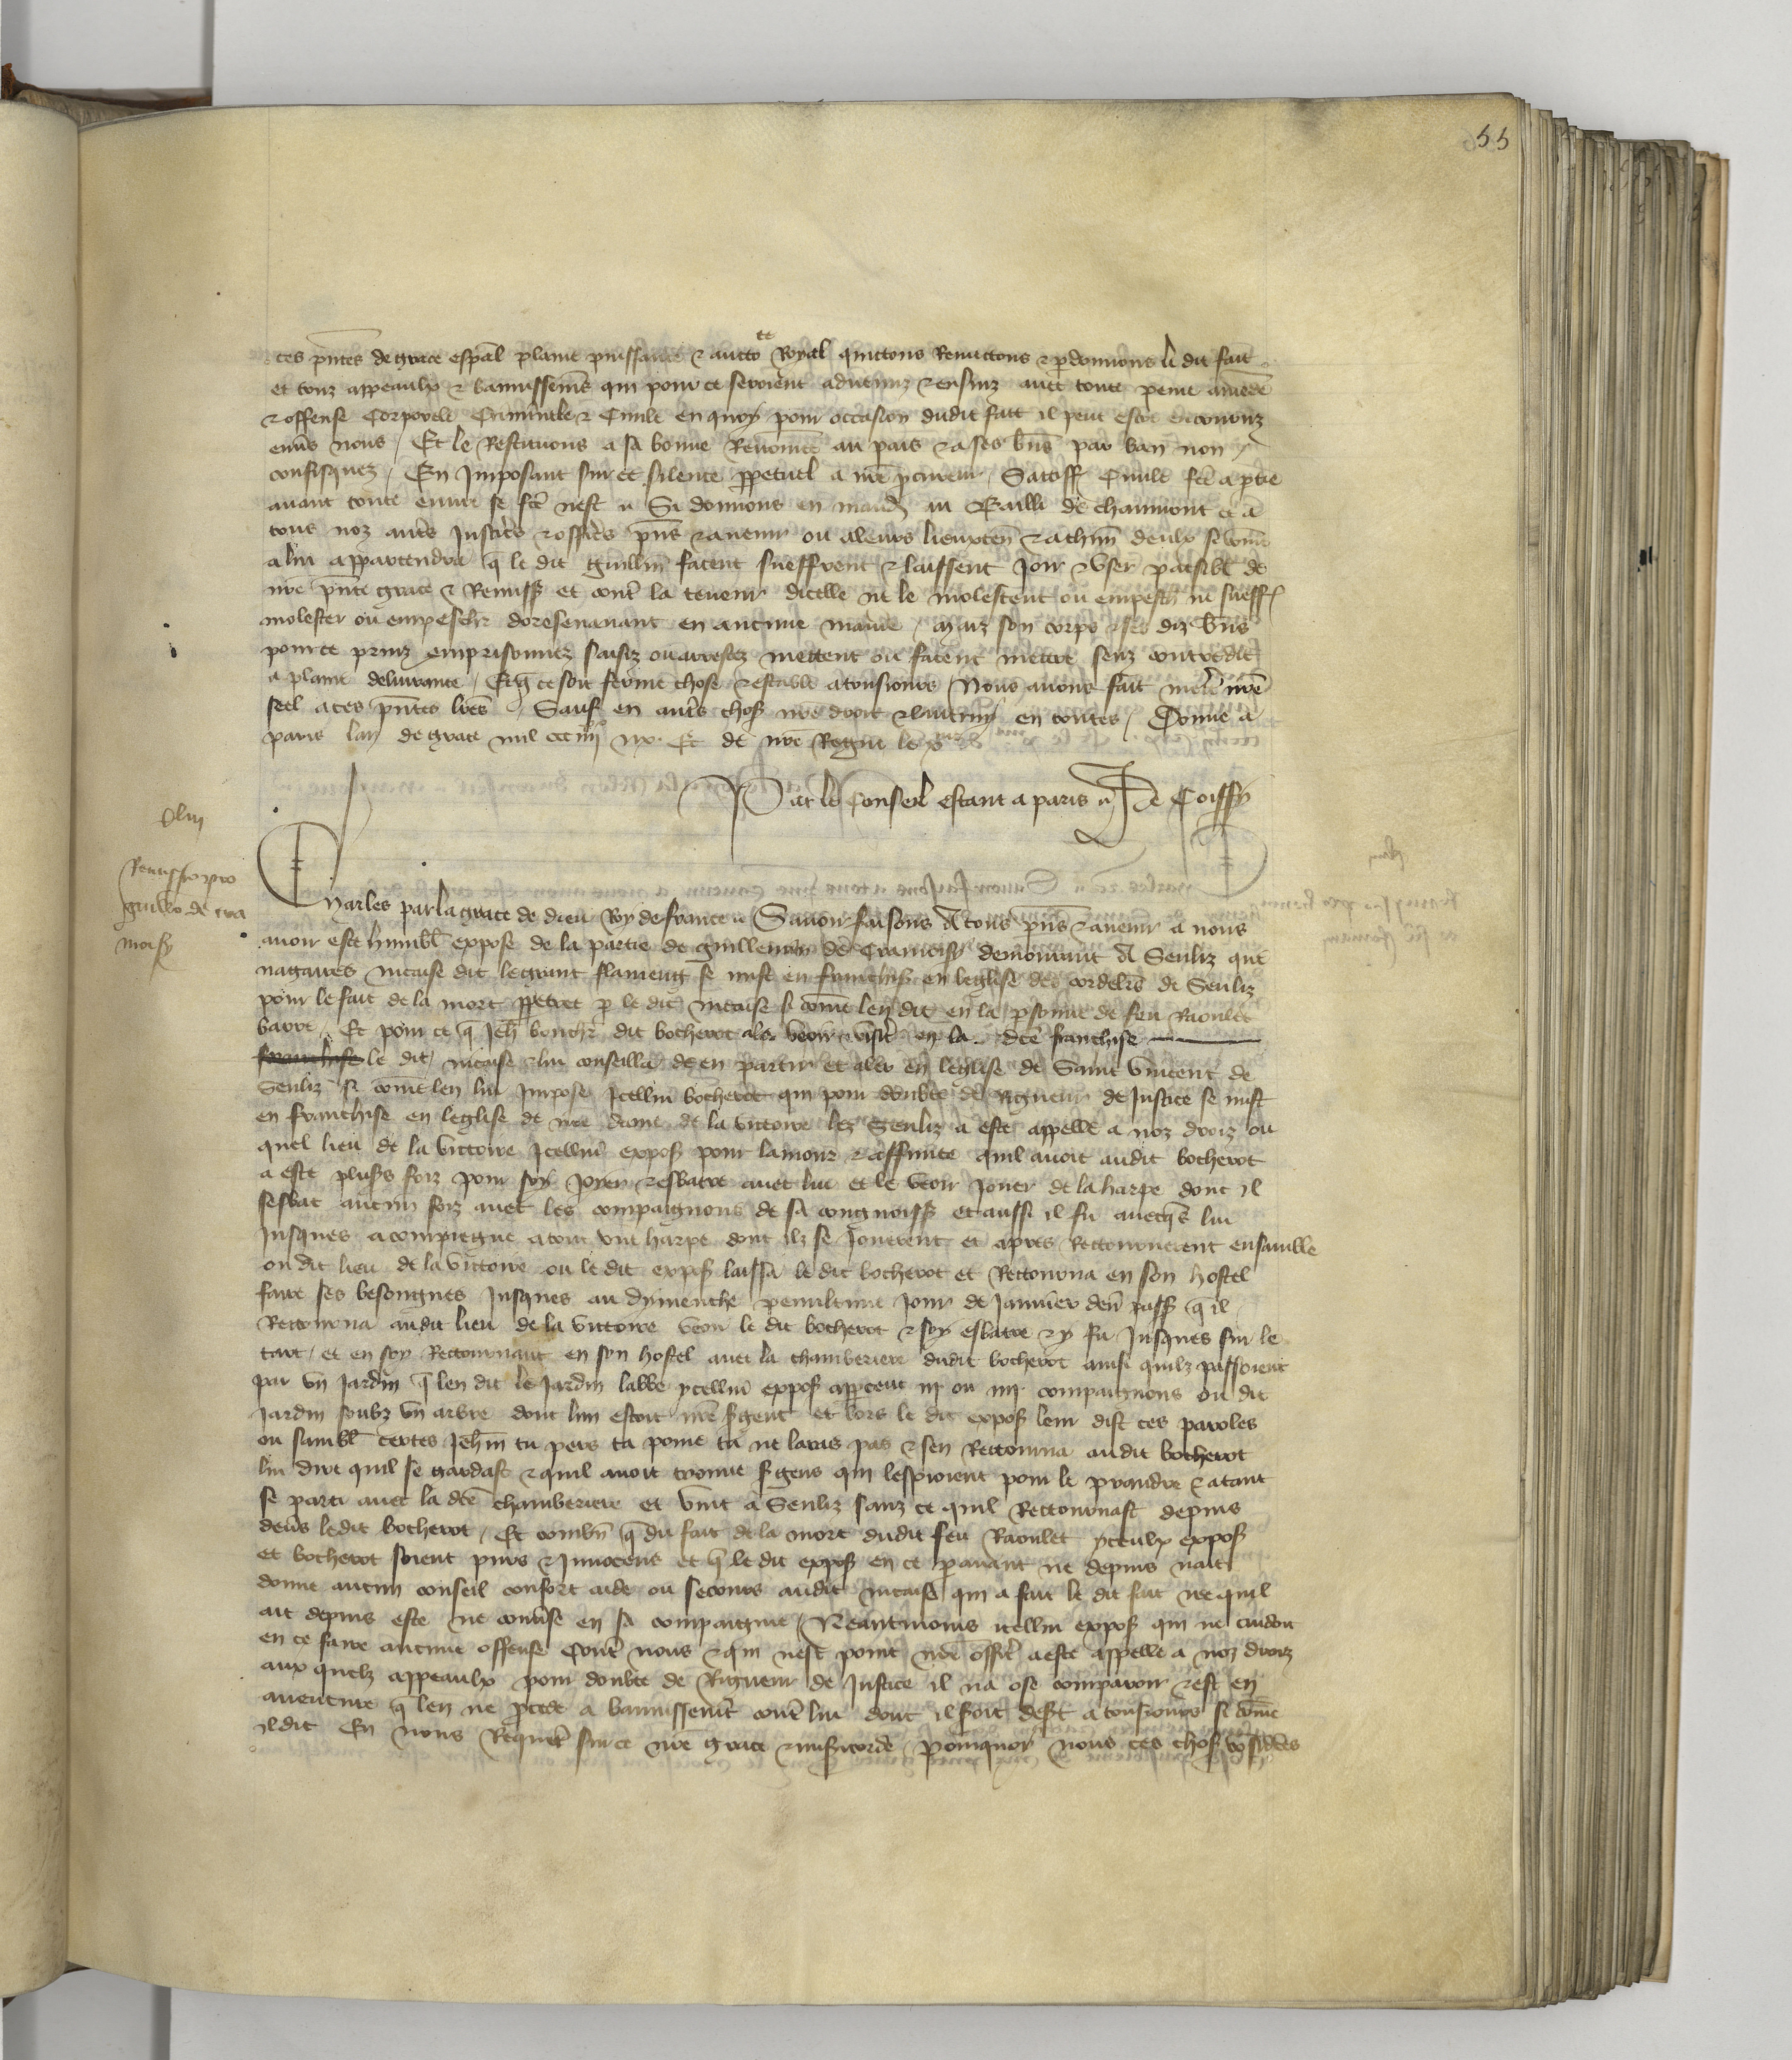 55
ces pñtes de grace espãl plaine puissance & aucto^te Royal quictons Remectons & pdonnons le dit fait
et touz appeaulx & bannissemẽs qui pour ce seroient advenuz & ensuiz avec toute peine amẽde
& offense Corporele Criminele & Civile en quoy pour occasion dudit fait il peut estre encouruz
envs nous / Et le Restituons a sa bonne Renomee au pais & a ses biẽs par ban non
confisquez / En Imposant sur ce silence ppetuel a nre pcureur / Satiff Civile fce a ptie
avant toute euvre se fce nest Si donnons en mand au Bailli de chaumont et a
tous noz aut̃s Justic̃rs & offic̃rs pñs & avenir ou a leurs lieuxten & a ch̃un deulx si cõme
a lui appartendra q̃ le dit guillm̃ facent sueffrent & laissent Joir & user paisibl de
nre pñte grace & Remiss et cont̃ la teneur dicelle ne le molestent ou empesch ne sueff
molester ou empeschr doresenavant en aucune maniẽ / maiz son corps & ses diz biẽs
pour ce prinz emprisonnez saisiz ou arrestez mettent ou facent mettre senz contredit
a plaine delivrance / Et q̃ ce soit ferme chose & estable a tousjours Nous avons fait mectre nrẽ
seel a ces pñtes lr̃es / Sauf en aut̃s chos nre droit & lautruy en toutes / Donne a
paris lan de grace mil ccc iiij^xx ix. Et de nrẽ Regne le x^e
Par le Conseil estant a paris J de Coiffy
Olim
Remissio pro
guillo de cra
moisy
Charles par la grace de dieu Roy de france Savoir faisons A tous pñs & avenir a nous
avoir este humbl expose de la partie de guillemin de Cramoisy demourant A Senliz que
nagaires nicaise dit le grant flameng se mist en franchis en leglise des cordelr̃s de Senliz
pour le fait de la mort ppetree p le dit nicaise si cõme len dit en la psonne de feu Raoulet
barre / Et pour ce q̃ Jeh̃ bouchr̃ dit bocherot ala veoir & visit̃ en la dcẽ franchise
franchise le dit nicaise & lui conseilla den partir et aler en leglise de Saint Vincent de
Senliz si cõme len lui Impose Icellui bocherot qui pour doubte de Rigueur de Justice se mist
en franchise en leglise de nre dame de la victoire lez Senliz a este appelle a noz droiz ou
quel lieu de la victoire Icellui expos pour lamour & affinite quil avoit audit bocherot
a este plus̃s foiz pour soy Joier & esbatre avec lui et le veoir Jouer de la harpe dont il
sesbat aucun foiz avec les compaignons de sa congnoiss et aussi il fu avecqs lui
Jusques a compiegne a tout une harpe dont ilz se Jouerent et apres Rectournerent ensamble
ou dit lieu de la victoire ou le dit expos laissa le dit bocherot et Rectourna en son hostel
faire ses besongnes Jusques au dymenche penultime jour de Janvier den pass q̃ il
Rectourna audit lieu de la victoire veoir le dit bocherot & soy esbatre & y fu Jusques sur le
tart / et en soy Rectournant en son hostel avec la chamberiere dudit bocherot ainsi quilz passoient
par un Jardin q̃ len dit le Jardin labbe ycellui expos apperceut iij ou iiij compaignons ou dit
Jardin soubz un arbre dont lun estoit nre sgent et lors le dit expos leur dist ces paroles
ou sambl certes Jehm̃ tu pers ta peine tu ne lavras pas & sen Rectourna audit bocherot
lui dire quil se gardast & quil avoit trouve sgens qui lespioient pour le prandre & atant
se parti avec la dcẽ chamberiere et vint a Senliz sanz ce quil Rectournast depuis
devs ledit bocherot / Et combn̄ q̃ du fait de la mort dudit feu Raoulet yceulx expos
et bocherot soient purs & Innocens et q̃ le dit expos en ce p avant ne depuis nait
donne aucun conseil confort aide ou secours audit nicaise qui a fait le dit fait ne quil
ait depuis este ne converse en sa compaignie / Neantmoins icellui expos qui ne cuidoit
en ce faire aucune offense Cont̃ nous & qui nest point nrẽ offic̃r a este appelle a noz droiz
aux quelz appeaulx pour doubte de Rigueur de Justice il na ose comparoir & est en
aventure q̃ len ne pcede a bannissemt̃ cont̃ lui dont il soit dest a tousjours si cõme
il dit En nous Requer̃ sur ce nrẽ grace & mis̃icorde / pourquoy nous ces chos cõsidẽes